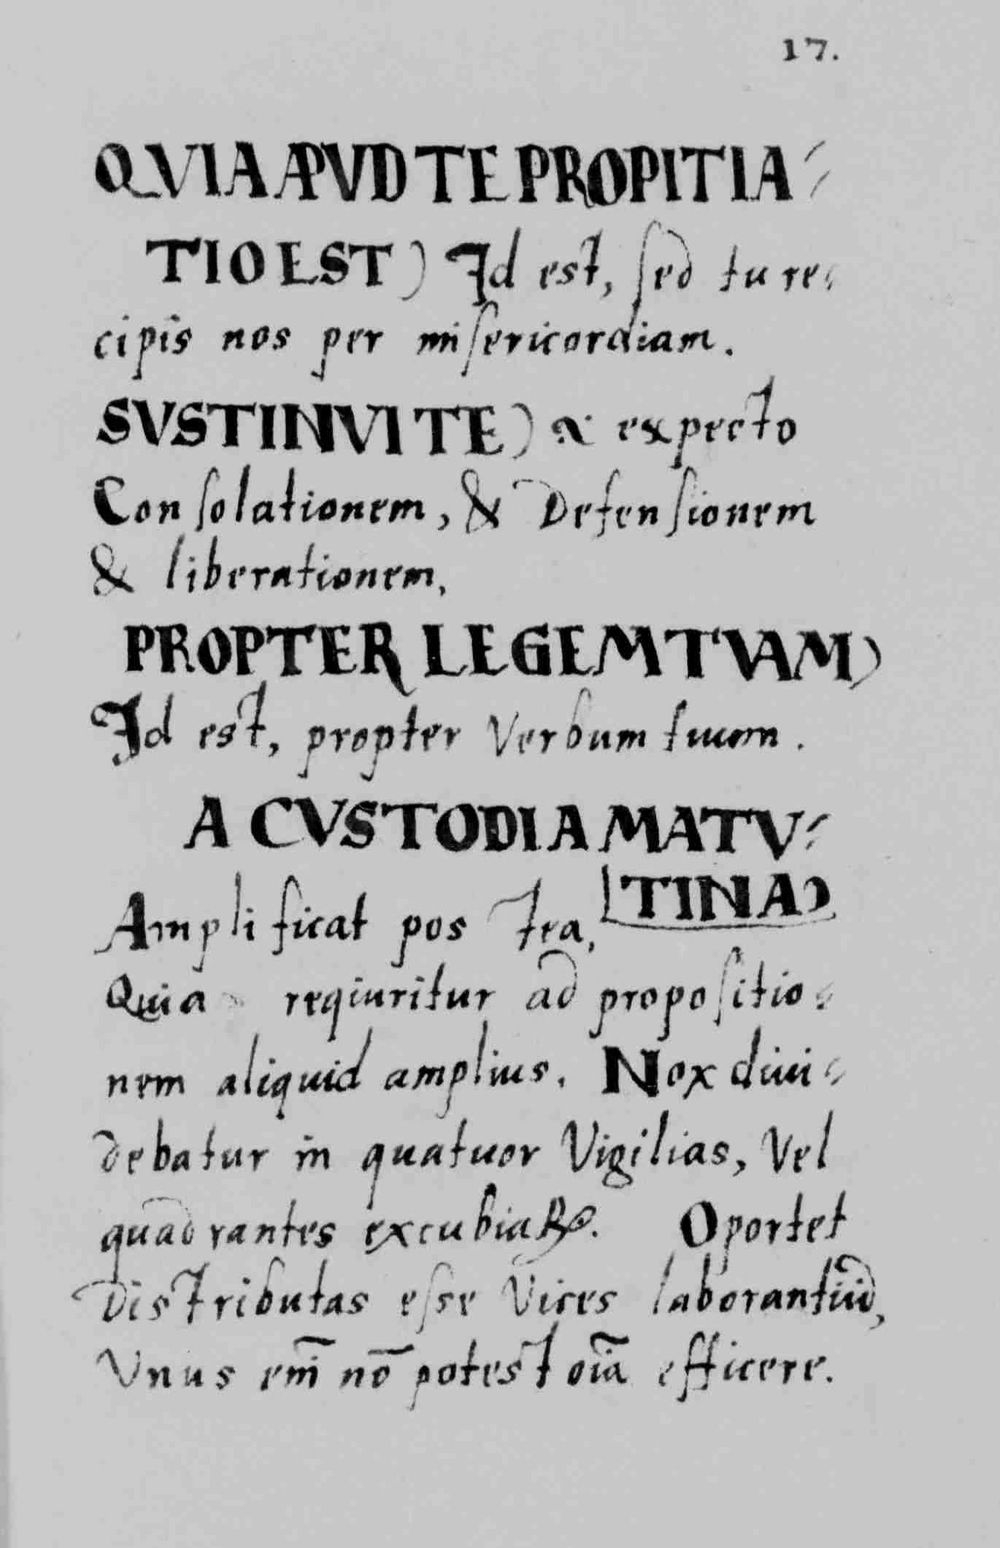 17.
QVIA APVD TE PROPITIA⸗
TIO EST) Id est, sed tu re⸗
cipis nos per misericordiam.
SVSTINVI TE) & expecto
Consolationem, & Defensionem
& liberationem,
PROPTER LEGEM TVAM)
Id est, propter Verbum tuum.
A CVSTODIA MATV⸗
TINA)
Amplificat postea,
Quia reqiuritur ad propositio⸗
nem aliquid amplius. Nox diui⸗
debatur in quatuor Vigilias, Vel
quadrantes excubiaꝝ. Oportet
Distributas esse Vices laborantiũ,
Vnus em̃ nõ potest oĩa efficere.